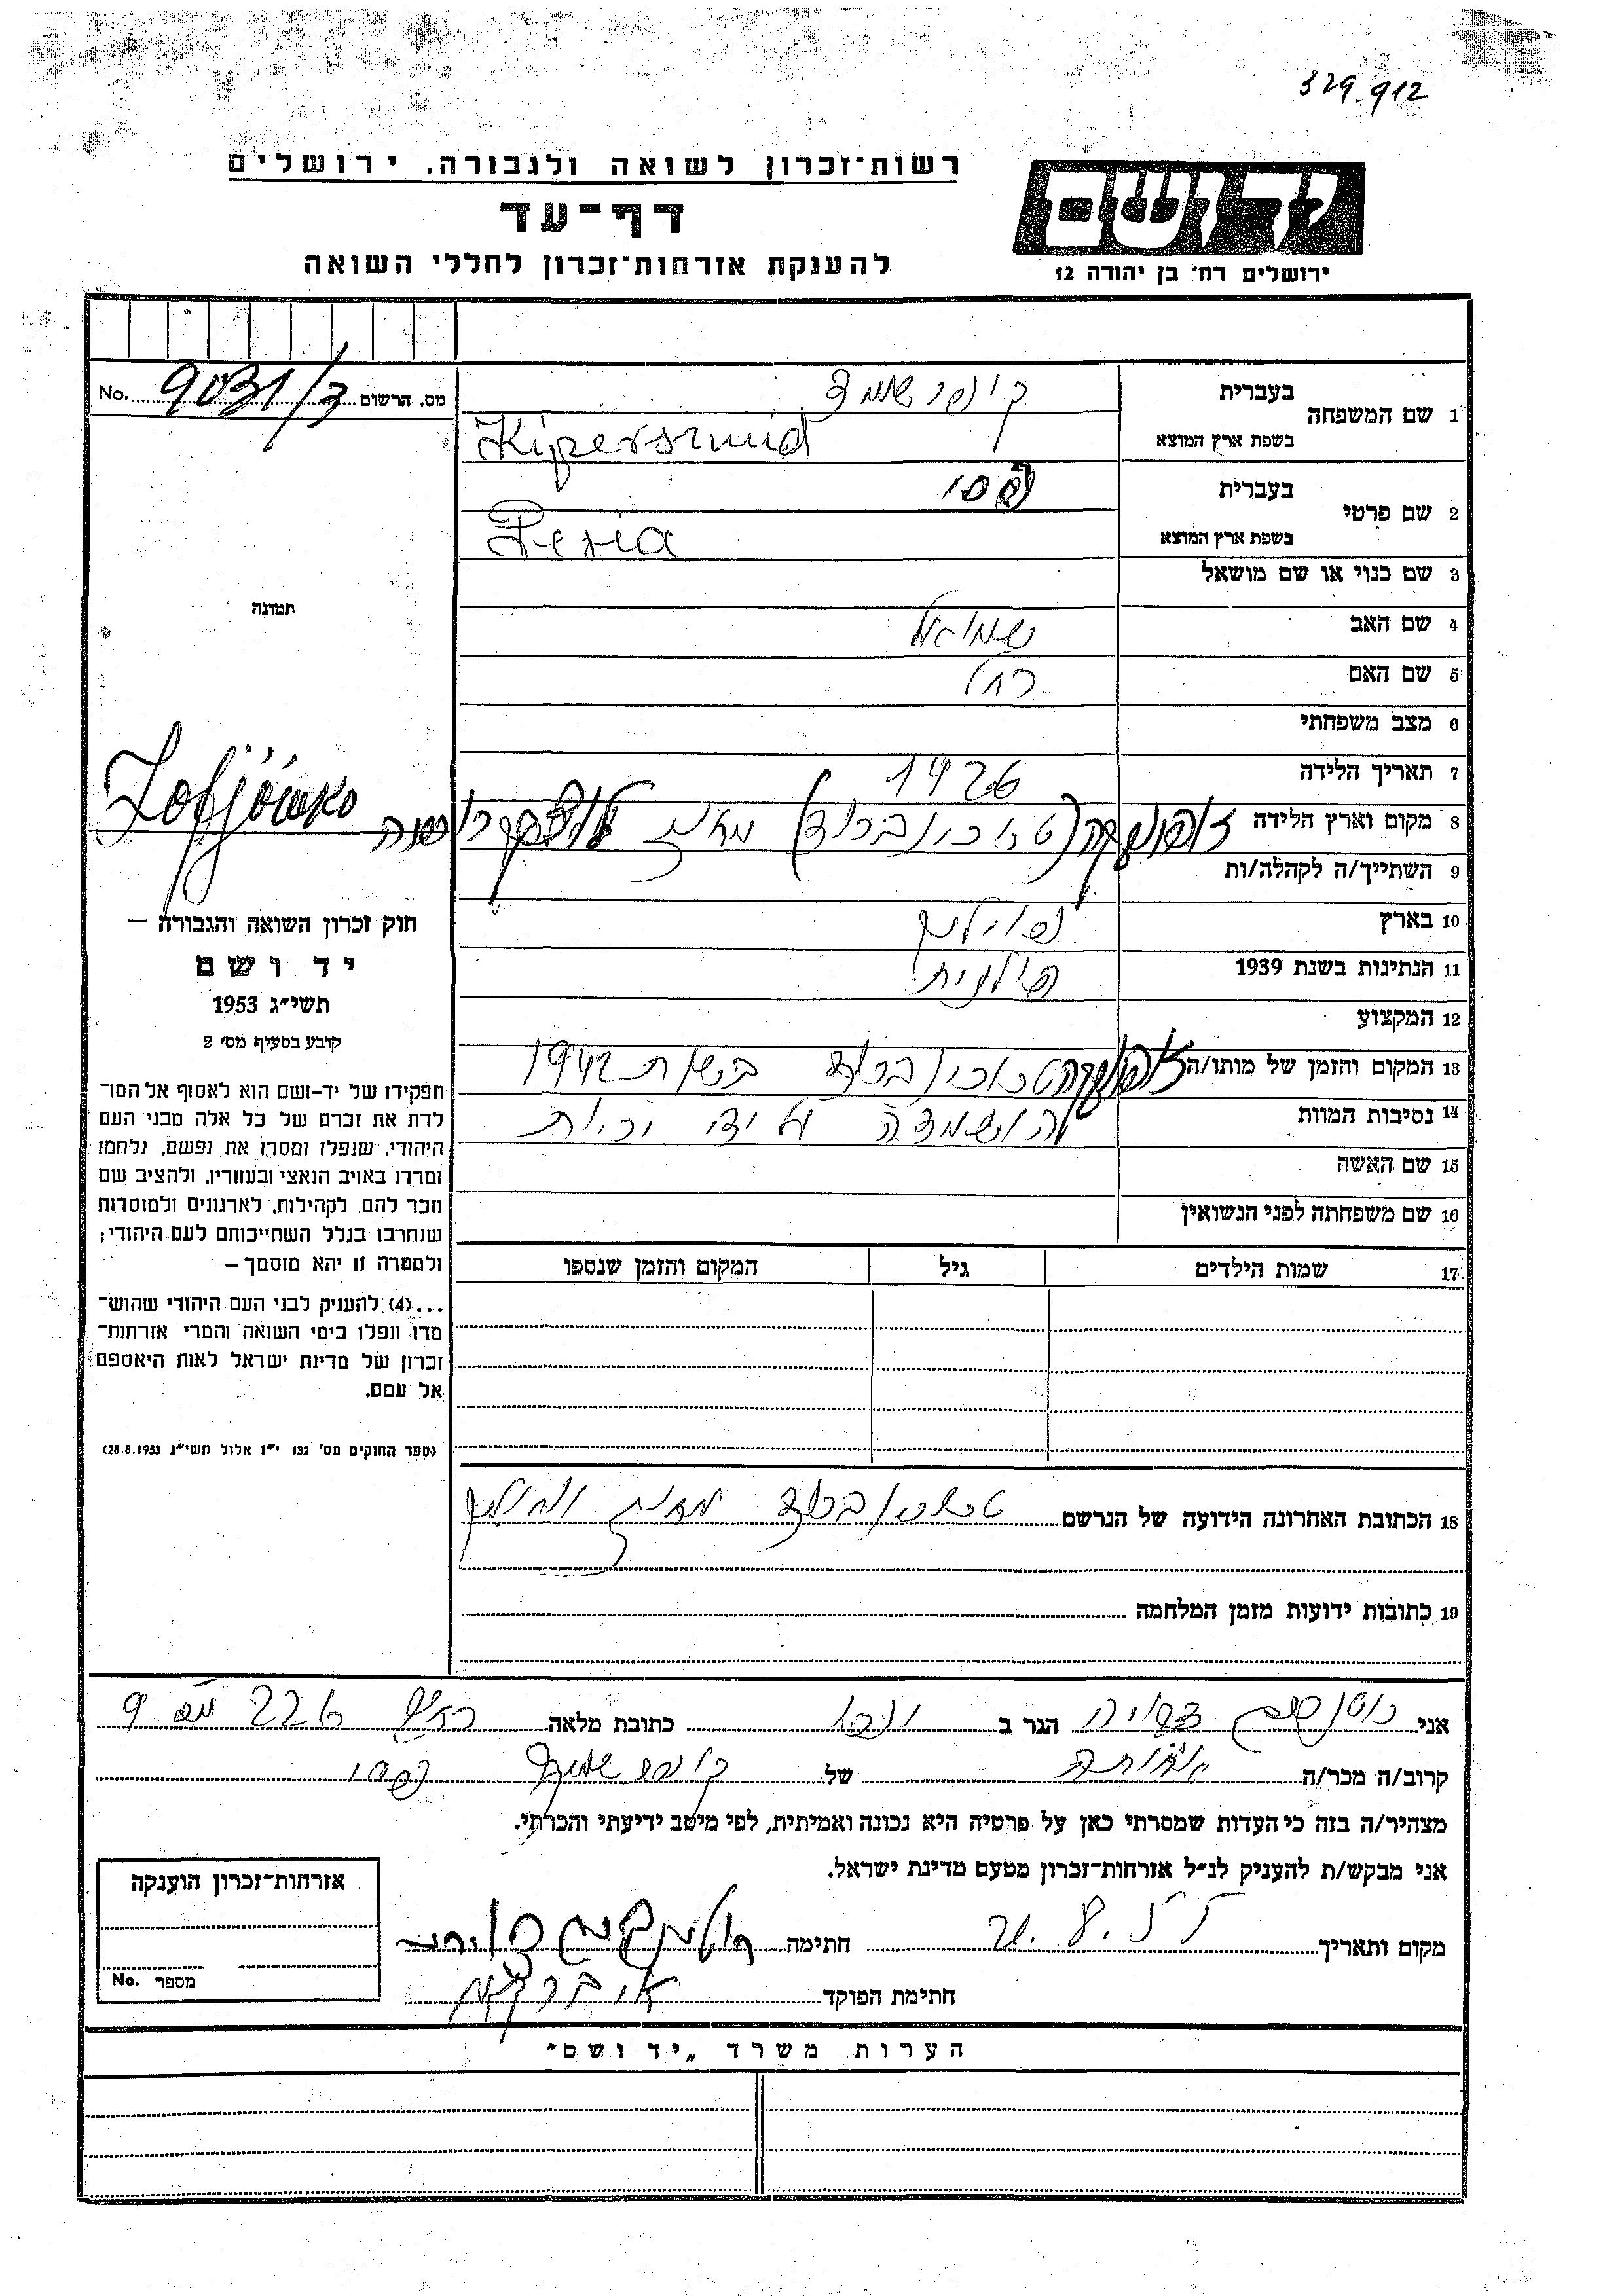 329.912
רשות־זכרון לשואה ולגבורה, ירושלים
דף־עד
להענקת אזרחות־זכרון לחללי השואה
יד ושם
ירושלים רח' בן יהודה 12
מס. הרשום 9031/3 No.
1 שם המשפחה
בעברית קיפרשמיד
בשפת ארץ המוצא Kipersmid
2 שם פרטי
בעברית פסי
בשפת ארץ המוצא Pesia
3 שם כנוי או שם מושאל
4 שם האב שמואל
5 שם האם רחל
6 מצב משפחתי
7 תאריך הלידה 1926
8 מקום וארץ הלידה
9 השתייך/ה לקהלה/ות
10 בארץ פוילין
11 הנתינות בשנת 1939 פולנית
12 המקצוע
13 המקום והזמן של מותו/ה בשנת 1942
14 נסיבות המוות הושמדה על ידי יריות
15 שם האשה
16 שם משפחתה לפני הנשואין
17 שמות הילדים גיל המקום והזמן שנספו
18 הכתובת האחרונה הידועה של הנרשם
19 כתובות ידועות מזמן המלחמה
תמונה
Zofjówka
חוק זכרון השואה והגבורה —
יד ושם
תשי״ג 1953
קובע בסעיף מס' 2
תפקידו של יד-ושם הוא לאסוף אל המו־
לדת את זכרם של כל אלה מבני העם
היהודי, שנפלו ומסרו את נפשם, נלחמו
ומרדו באויב הנאצי ובעוזריו, ולהציב שם
וזכר להם, לקהילות, לארגונים ולמוסדות
שנחרבו בגלל השתייכותם לעם היהודי;
ולמטרה זו יהא מוסמך —
...(4) להעניק לבני העם היהודי שהוש־
מדו ונפלו בימי השואה והמרי אזרחות־
זכרון של מדינת ישראל לאות היאספם
אל עמם.
(ספר החוקים מס' 132 י״ז אלול תשי״ג 28.8.1953)
אני הגר ב יפו כתובת מלאה 226 מס 9
קרוב/ה מכר/ה אחותה של קיפרשמיד פסי
מצהיר/ה בזה כי העדות שמסרתי כאן על פרטיה היא נכונה ואמיתית, לפי מיטב ידיעתי והכרתי.
אני מבקש/ת להעניק לנ״ל אזרחות־זכרון מטעם מדינת ישראל.
מקום ותאריך חתימה
חתימת הפוקד
אזרחות־זכרון הוענקה
מספר No.
הערות משרד „יד ושם״